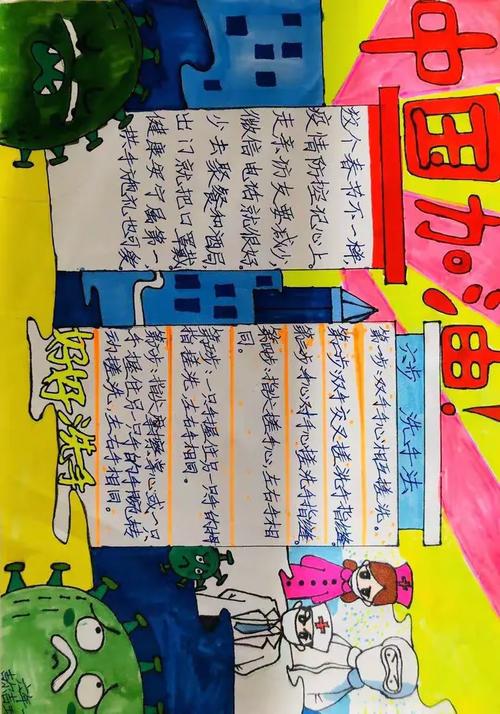 中国加油!
这个春节不一样,
疫情防控记心上。
走亲访友要减少,
微信电话就很好。
少去聚餐和酒局,
出门就把口罩戴
健康安宁属第一
拱手施礼也可
六步 洗手法
第一步双手手心相互搓洗。
第二步双手交叉搓洗手指缝
第三步手心对手心搓洗手指缝。
第四步指尖搓手心,左右手相
同。
第五步一只手握住另一只手拇指
搓洗,左右手相同。
第六步指尖摩擦掌心或一只
手握住另一只手的手腕转
动搓洗,左右手相同。
好好洗手